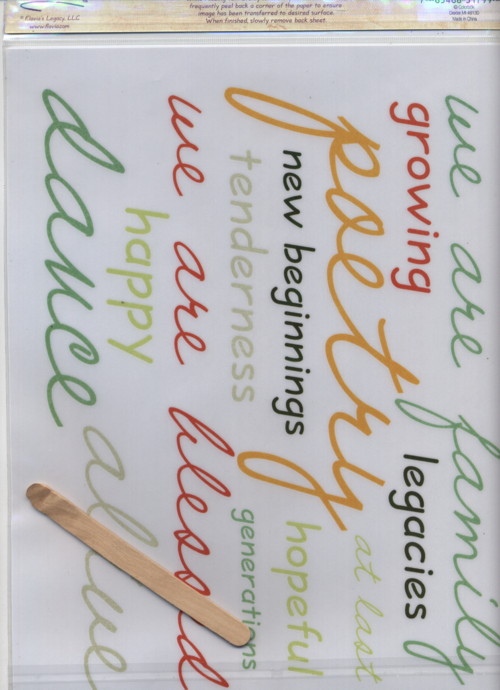 frequently peel back a corner of the paper to ensure
image has been transferred to desired surface.
When finished, slowly remove back sheet
© Flavia's Legacy, LLC
www.flavia.com
Made in China
we are family
growing
legacies
poetry
at last
new beginnings
hopeful
tenderness
generations
we are blessed
happy
alive
dance